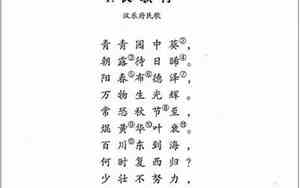 汉乐府民歌
青青园中葵②,
朝露③待日晞④。
阳春⑤布⑥德泽⑦,
万物生光辉。
常恐秋节⑧至,
焜黄⑨华⑩叶衰⑪。
百川⑫东到海,
何时复西归?
少壮不努力,